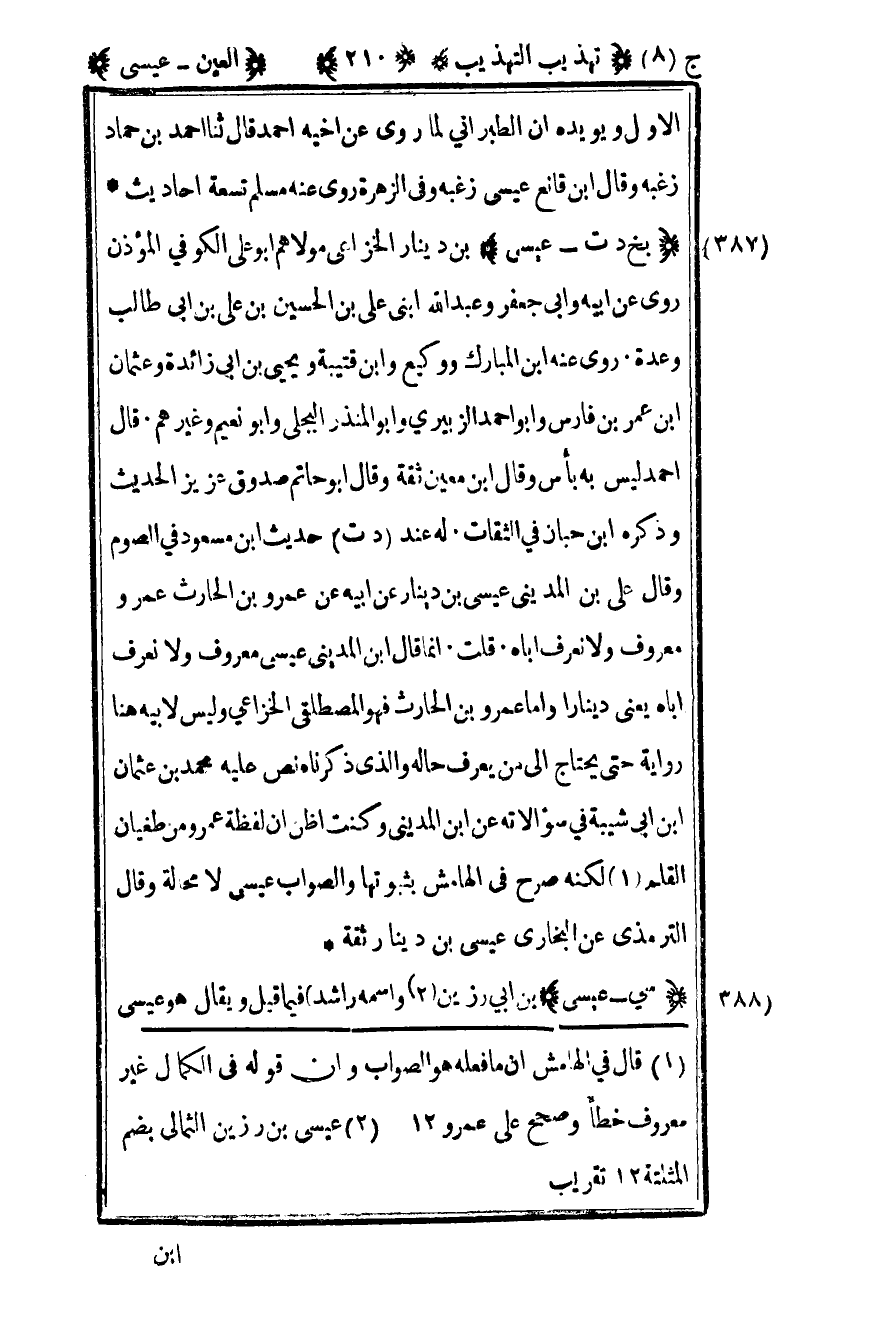 ج (٨) ﴿ تهذيب التهذيب ﴾ ﴿ ٢١٠ ﴾ ﴿ العين ـ عيسى ﴾
الاول ويويده ان الطبراني لما روى عن اخيه احمد قال ثنا احمد بن حماد
زغبه وقال ابن قانع عيسى زغبه وفى الزهرة روى عنه مسلم تسعة احاديث *
(٣٨٧) ﴿ بخ د ت ـ عيسى ﴾ بن دينار الخزاعى مولاهم ابو على الكوفي المؤذن
روى عن ابيه وابى جعفر وعبدالله ابنى على بن الحسين بن على بن ابى طالب
وعدة · روى عنه ابن المبارك ووكيع وابن قتيبة ويحيى بن ابى زائدة وعثمان
ابن عمر بن فارس وابو احمد الزبيري وابو المنذر البجلى وابو نعيم وغيرهم · قال
احمد ليس به بأس وقال ابن معين ثقة وقال ابو حاتم صدوق عزيز الحديث
وذكره ابن حبان في الثقات · له عند (د ت) حديث ابن مسعود في الصوم
وقال على بن المدينى عيسى بن دينار عن ابيه عن عمرو بن الحارث عمرو
معروف ولا نعرف اباه · قلت · انما قال ابن المدينى عيسى معروف ولا نعرف
اباه يعنى دينارا واما عمرو بن الحارث فهو المصطلقى الخزاعي وليس لابيه هنا
رواية حتى يحتاج الى من يعرف حاله والذى ذكرناه نص عليه محمد بن عثمان
ابن ابى شيبة في سؤالاته عن ابن المدينى وكنت اظن ان لفظة عمرو من طغيان
القلم (١) لكنه صرح فى الهامش بثبوتها والصواب عيسى لا محالة وقال
الترمذى عن البخارى عيسى بن دينار ثقة *
(٣٨٨ ﴿ سي ـ عيسى ﴾ بن ابي رزين (٢) واسمه راشد) فيما قيل ويقال هو عيسى
(١) قال في الهامش ان ما فعله هو الصواب وان قوله فى الكمال غير
معروف خطأ وصحح على عمرو ١٢ (٢) عيسى بن رزين الثمالى بضم
المثلثة ١٢ تقريب
ابن